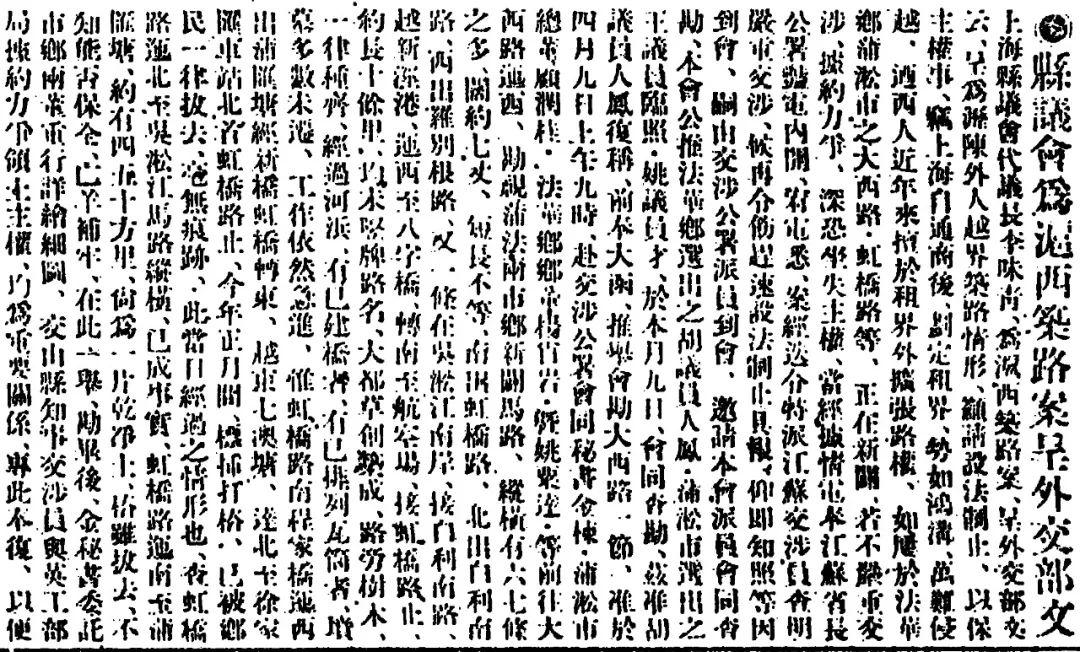 縣議會爲滬西築路案呈外交部文
上海縣議會代議長李味靑、爲滬西築路案、呈外交部文
云、呈爲瀝陳外人越界築路情形、籲請設法制止、以保
主權事、竊上海自通商後、劃定租界、勢如鴻溝、萬難侵
越、迺西人近年來擅於租界外擴張路樓、如屢於法華
鄕蒲淞市之大西路·虹橋路等、正在新闢、若不嚴重交
涉、據約力爭、深恐坐失主權、當經據情電奉江蘇省長
公署魭電內開、宥電悉、案經迭令特派江蘇交涉員查明
嚴重交涉、候再令飭趕速設法制止具報、仰卽知照等因
到會、嗣由交涉公署派員到會、邀請本會派員會同查
勘、本會公推法華鄕選出之胡議員人鳳·蒲淞市選出之
王議員臨照·姚議員才、於本月九日、會同查勘、茲准胡
議員人鳳復稱、前奉大函、推舉會勘大西路一節、准於
四月九日上午九時、赴交涉公署會同秘書金棟·蒲淞市
總董顧潤桂·法華鄕鄕董楊貢若·暨姚衆達·等前往大
西路迤西、勘視蒲法兩市鄕新闢馬路、縱橫有六七條
之多、闊約七丈、短長不等、南出虹橋路、北出白利南
路、西出羅別根路、又一條在吳淞江南岸、接白利南路、
越新涇港、迤西至八字橋、轉南至航空場、接虹橋路止、
約長十餘里、均未竪牌路名、大都草創築成、路旁樹木、
一律種齊、經過河浜、有已建橋者、有已排列瓦筒者、墳
墓多數未遷、工作依然急進、惟虹橋路南程家橋迤西
出蒲匯塘經新橋虹橋轉東、越東七澳塘、達北至徐家
匯車站北首虹橋路止、今年正月間、標插打樁、已被鄕
民一律拔去、毫無痕跡、此當日經過之情形也、查虹橋
路迤北至吳淞江馬路縱橫、已成事實、虹橋路迤南至蒲
匯塘、約有四五十方里、尙爲一片乾淨土、樁雖拔去、不
知能否保全、亡羊補牢、在此一舉、勘畢後、金秘書委託
市鄕兩董重行詳繪細圖、交由縣知事交涉員與英工部
局據約力爭領土主權、均爲重要關係、專此奉復、以便